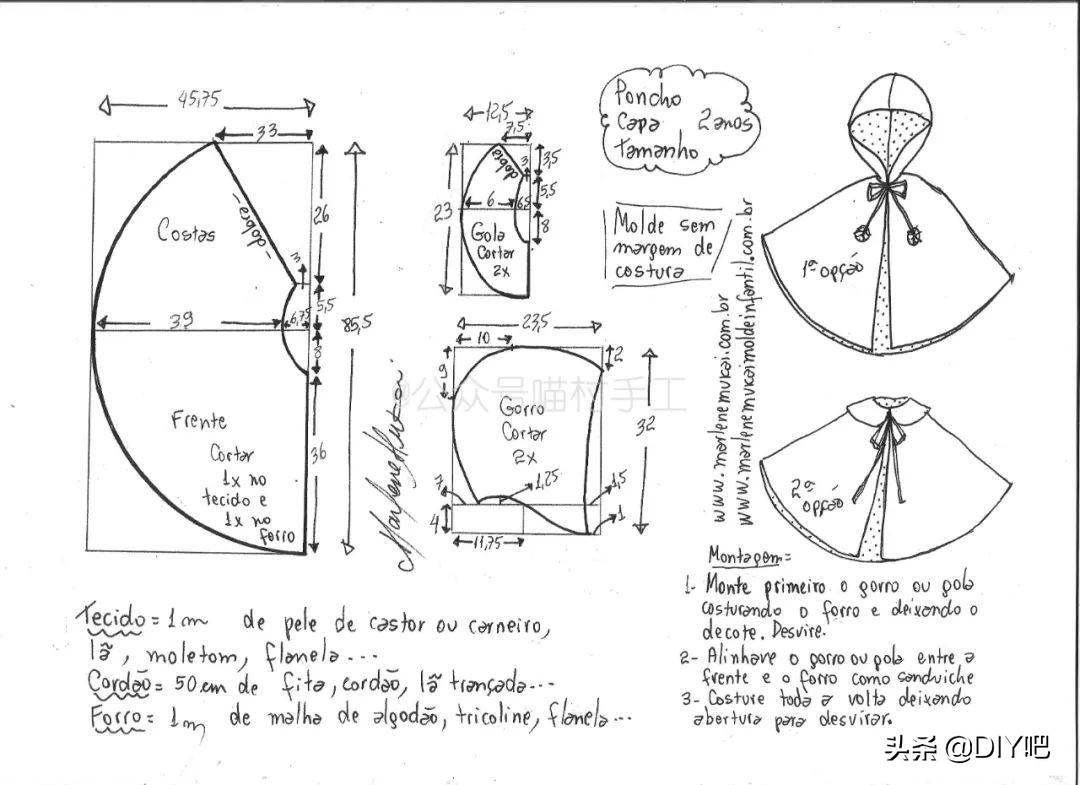 45,75
33
Costas
- dobra -
26
3
5,5
39
6,75
85,5
8
Frente
Cortar
1x no
tecido e
1x no
forro
36
12,5
7,5
dobra
3
3,5
5,5
23
6
6,5
8
Gola
Cortar
2x
23,5
10
2
9
Gorro
Cortar
2x
32
7
1,25
1,5
4
1
11,75
@公众号喵村手工
Marlene Mukai
Poncho
Capa 2 anos
tamanho
Molde sem
margem de
costura
www.marlenemukai.com.br
www.marlenemukaimoldeinfantil.com.br
1ª opção
2ª
opção
Tecido = 1m de pele de castor ou carneiro,
lã, moletom, flanela...
Cordão = 50 cm de fita, cordão, lã trançada...
Forro = 1m de malha de algodão, tricoline, flanela...
Montagem =
1- Monte primeiro o gorro ou gola
costurando o forro e deixando o
decote. Desvire.
2- Alinhave o gorro ou gola entre a
frente e o forro como sanduiche
3- Costure toda a volta deixando
abertura para desvirar.
头条 @DIY吧